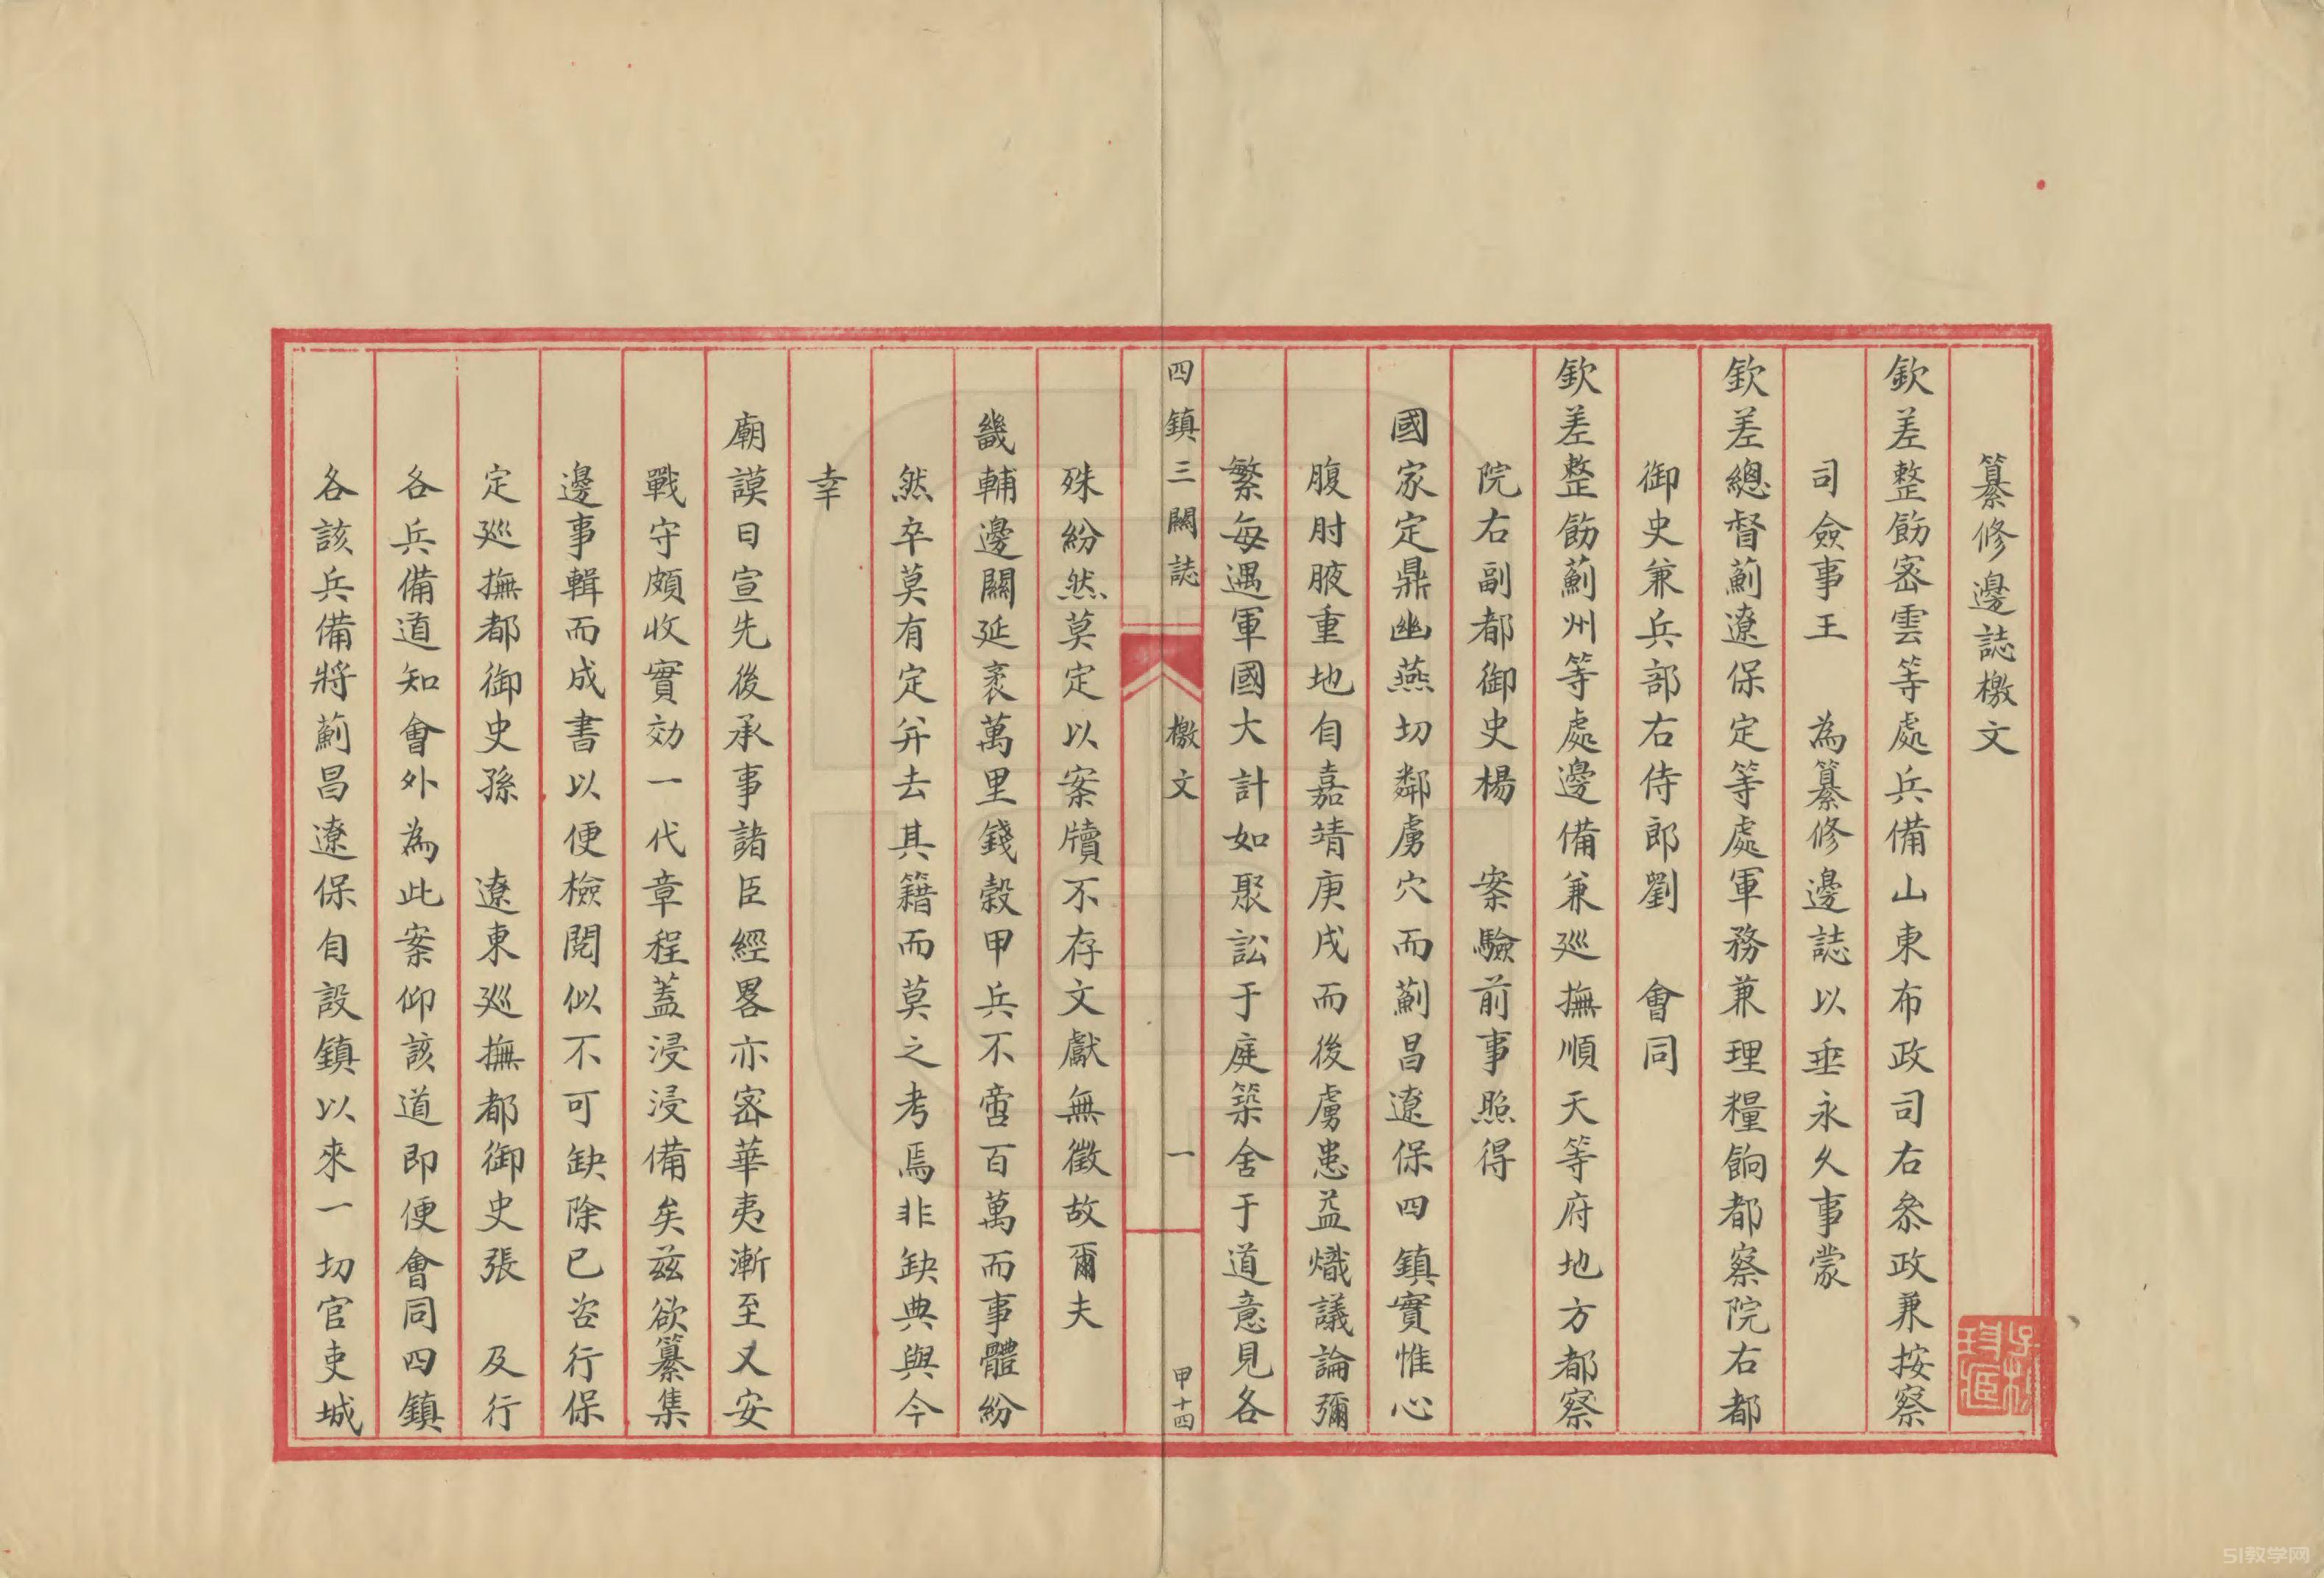 纂修邊誌檄文
欽差整飭密雲等處兵備山東布政司右叅政兼按察
司僉事王　為纂修邊誌以垂永久事蒙
欽差總督薊遼保定等處軍務兼理糧餉都察院右都
御史兼兵部右侍郎劉　會同
欽差整飭薊州等處邊備兼廵撫順天等府地方都察
院右副都御史楊　案驗前事照得
國家定鼎幽燕切鄰虜穴而薊昌遼保四鎮實惟心
腹肘腋重地自嘉靖庚戌而後虜患益熾議論彌
繁每遇軍國大計如聚訟于庭築舍于道意見各
四鎮三關誌　檄文　一　甲十四
殊紛然莫定以案牘不存文獻無徵故爾夫
畿輔邊關延袤萬里錢穀甲兵不啻百萬而事體紛
然卒莫有定弁去其籍而莫之考焉非缺典與今
幸
廟謨日宣先後承事諸臣經畧亦密華夷漸至乂安
戰守頗收實効一代章程蓋浸浸備矣茲欲纂集
邊事輯而成書以便檢閱似不可缺除已咨行保
定廵撫都御史孫　遼東廵撫都御史張　及行
各兵備道知會外為此案仰該道即便會同四鎮
各該兵備將薊昌遼保自設鎮以來一切官吏城
51教学网